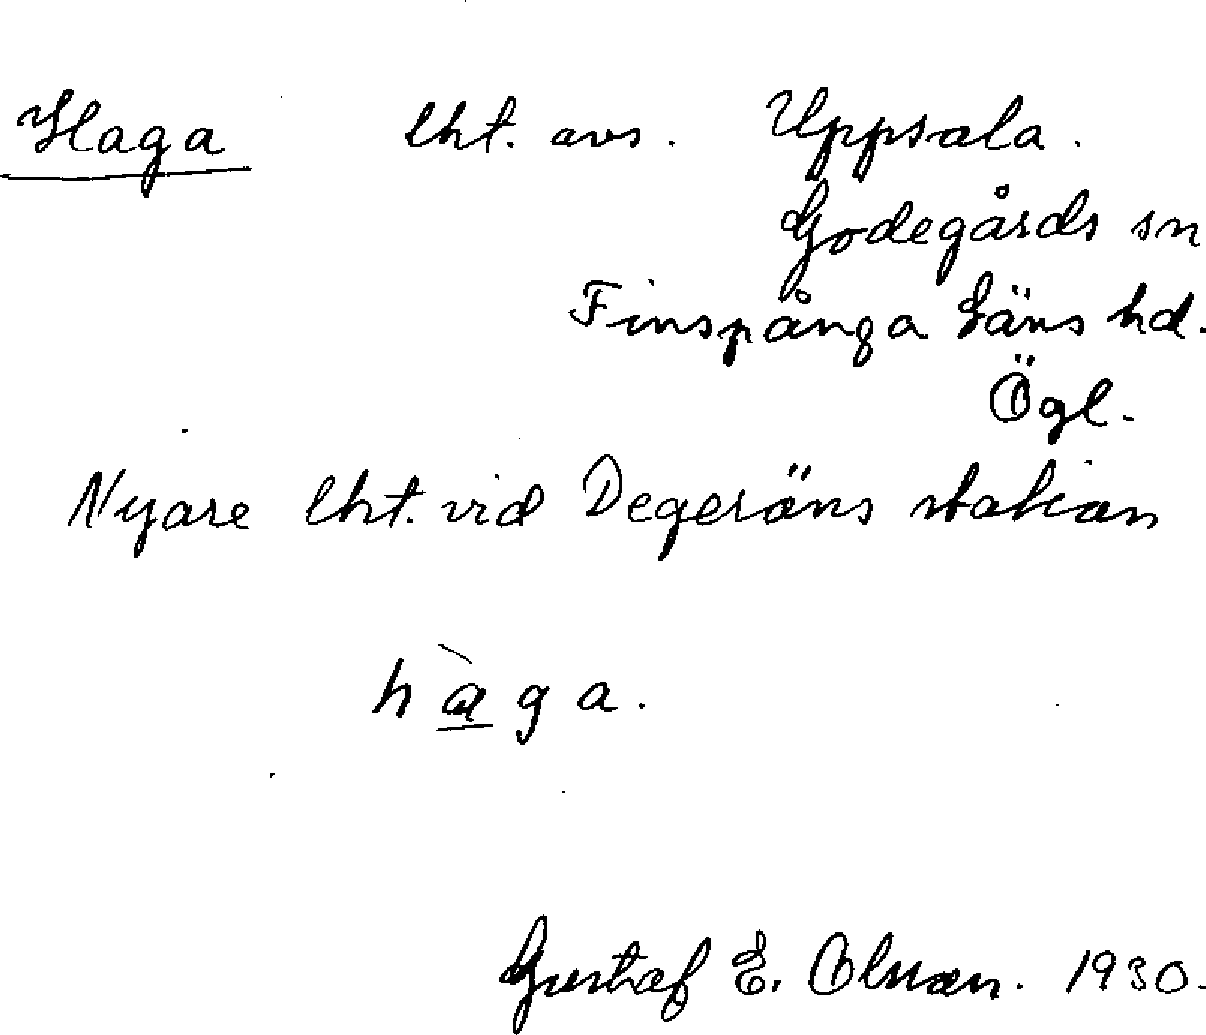 Haga lht. avs. Uppsala.
Godegårds sn
Finspånga Läns hd.
Ögl.
Nyare lht. vid Degeröns station
hàga.
Gustaf E. Olsson. 1930.